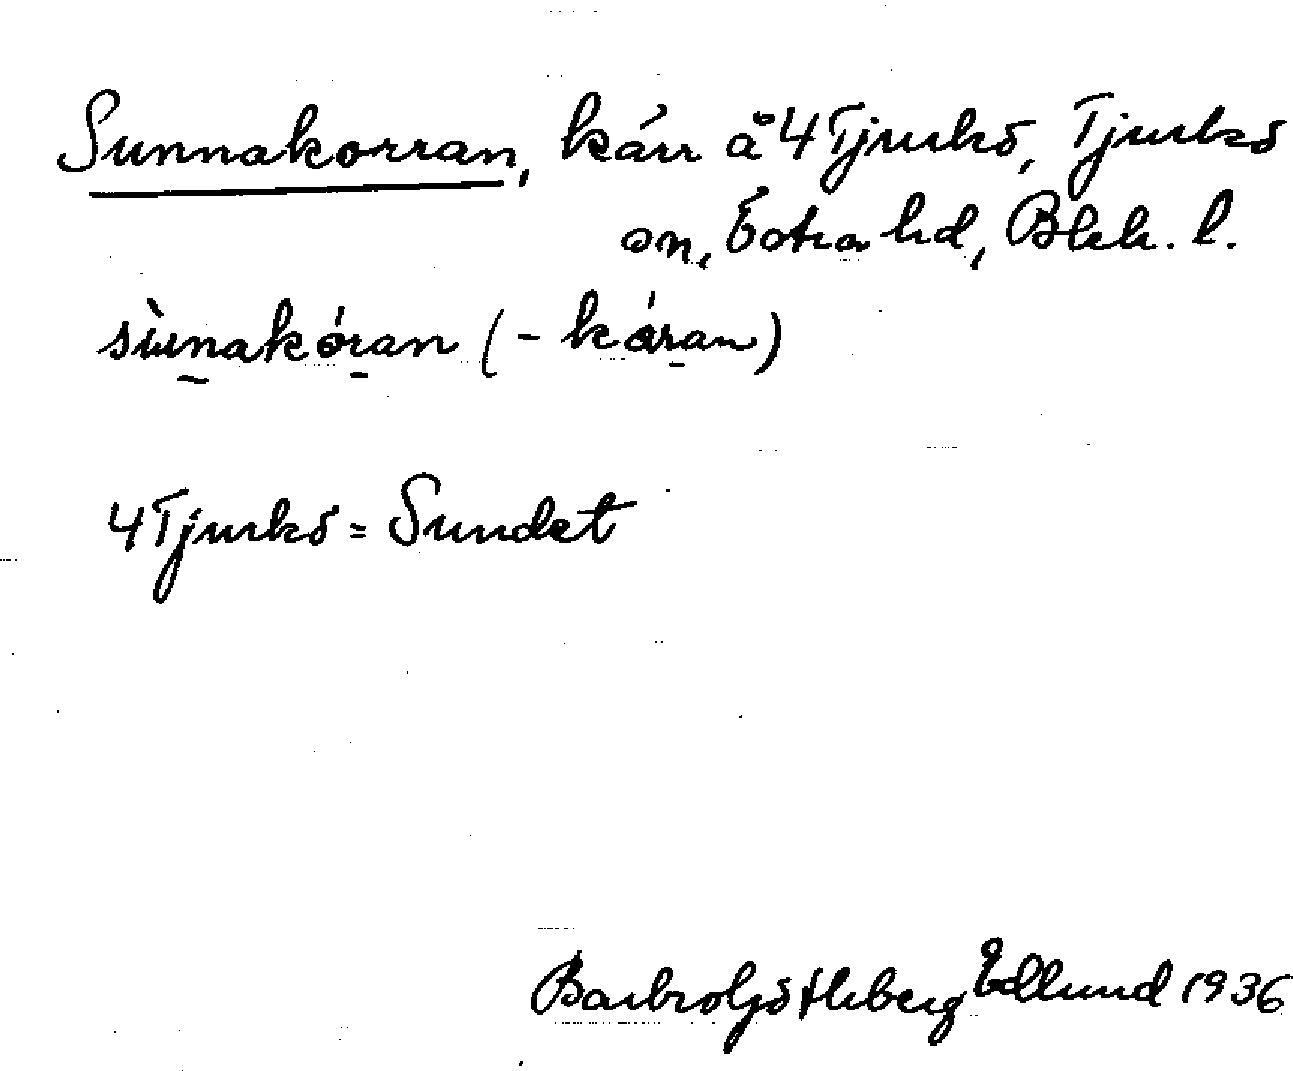 Sunnakorran, kärr å 4 Tjurkö, Tjurkö
sn, Östra hd, Blek. l.
sùnakǫ́ran (-káran)
4 Tjurkö = Sundet
Barbro Edlund 1936